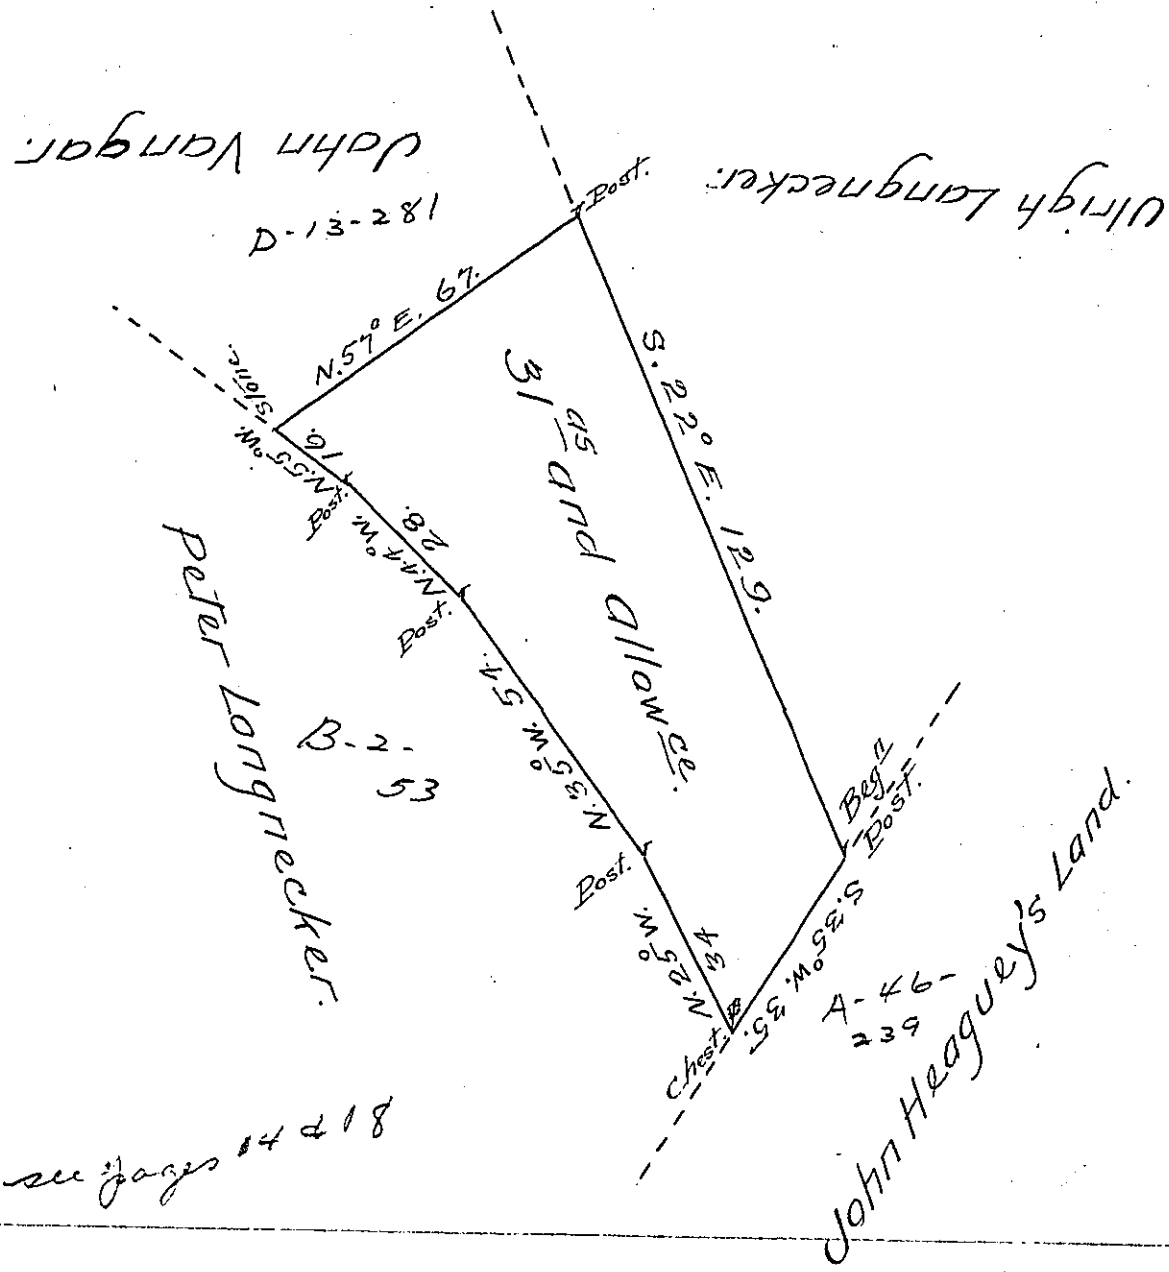 John Vangar.
D-13-281
Ulrigh Langnecker.
Post.
N. 57° E. 67.
Stone.
N. 55° W. 16.
Post.
N. 44° W. 28.
Post.
N. 35° W. 54.
Post.
N. 25° W. 34
Chest.
S. 35° W. 35.
Beg.n
Post.
S. 22° E. 129.
31 as and allowce.
Peter Longnecker.
B-2-
53
A-46-
239
John Heaguey's Land.
see pages 14 & 18